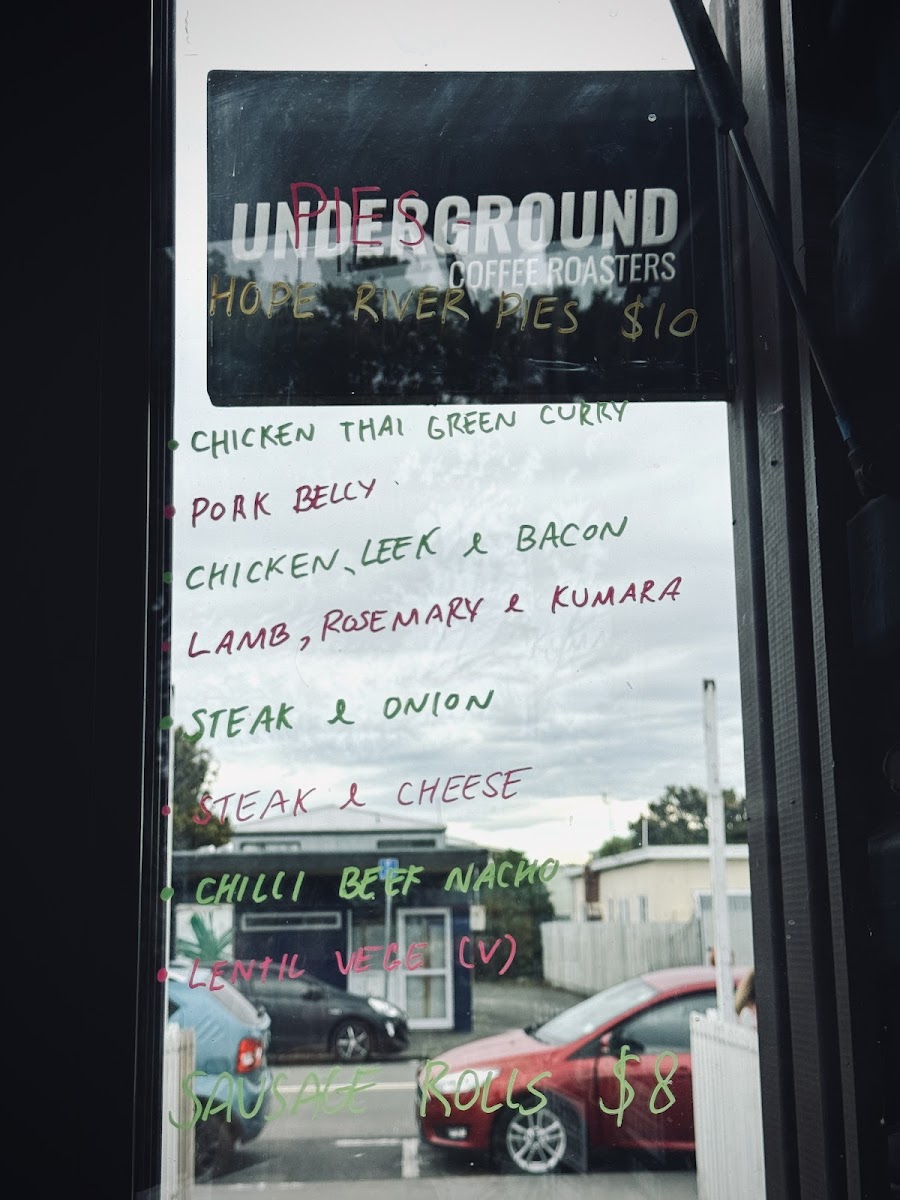 PIES -
UNDERGROUND
COFFEE ROASTERS
HOPE RIVER PIES $10
• CHICKEN THAI GREEN CURRY
• PORK BELLY
• CHICKEN, LEEK & BACON
• LAMB, ROSEMARY & KUMARA
• STEAK & ONION
• STEAK & CHEESE
• CHILLI BEEF NACHO
• LENTIL VEGE (V)
SAUSAGE ROLLS $8